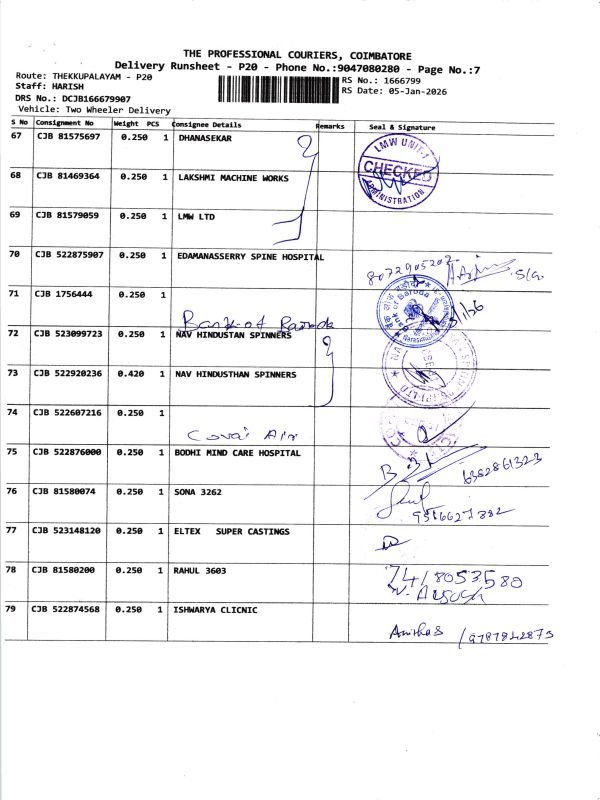 THE PROFESSIONAL COURIERS, COIMBATORE
Delivery Runsheet - P20 - Phone No.:9047080280 - Page No.:7
Route: THEKKUPALAYAM - P20 RS No.: 1666799
Staff: HARISH RS Date: 05-Jan-2026
DRS No.: DCJB166679907
Vehicle: Two Wheeler Delivery
S No Consignment No Weight PCS Consignee Details Remarks Seal & Signature
67 CJB 81575697 0.250 1 DHANASEKAR
LMW UNIT-1
CHECKED
ADMINISTRATION
68 CJB 81469364 0.250 1 LAKSHMI MACHINE WORKS
69 CJB 81579059 0.250 1 LMW LTD
70 CJB 522875907 0.250 1 EDAMANASSERRY SPINE HOSPITAL
8072905202
71 CJB 1756444 0.250 1
Bank of Baroda
Bank of Baroda
72 CJB 523099723 0.250 1 NAV HINDUSTAN SPINNERS
73 CJB 522920236 0.420 1 NAV HINDUSTHAN SPINNERS
74 CJB 522607216 0.250 1
Covai Air
75 CJB 522876000 0.250 1 BODHI MIND CARE HOSPITAL
6382861323
76 CJB 81580074 0.250 1 SONA 3262
77 CJB 523148120 0.250 1 ELTEX SUPER CASTINGS
78 CJB 81580200 0.250 1 RAHUL 3603
7418053580
79 CJB 522874568 0.250 1 ISHWARYA CLICNIC
9787842873